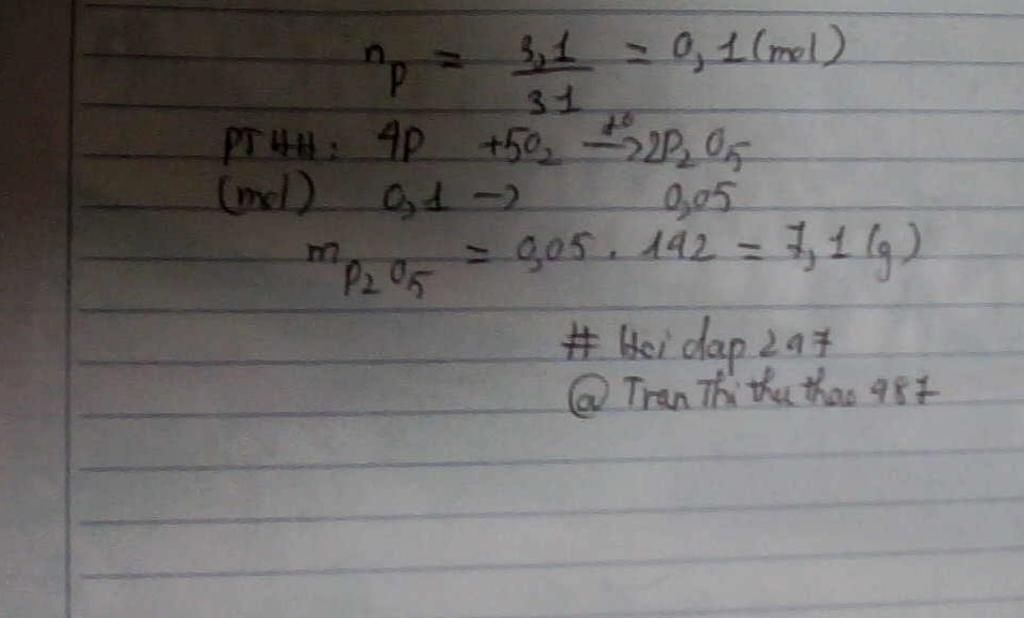 nP = 3,1/31 = 0,1 (mol)
PTHH: 4P +5O2 t°→ 2P2O5
(mol) 0,1 → 0,05
mP2O5 = 0,05 . 142 = 7,1 (g)
# Hoi dap 247
@ Tran Thi thu thao 987